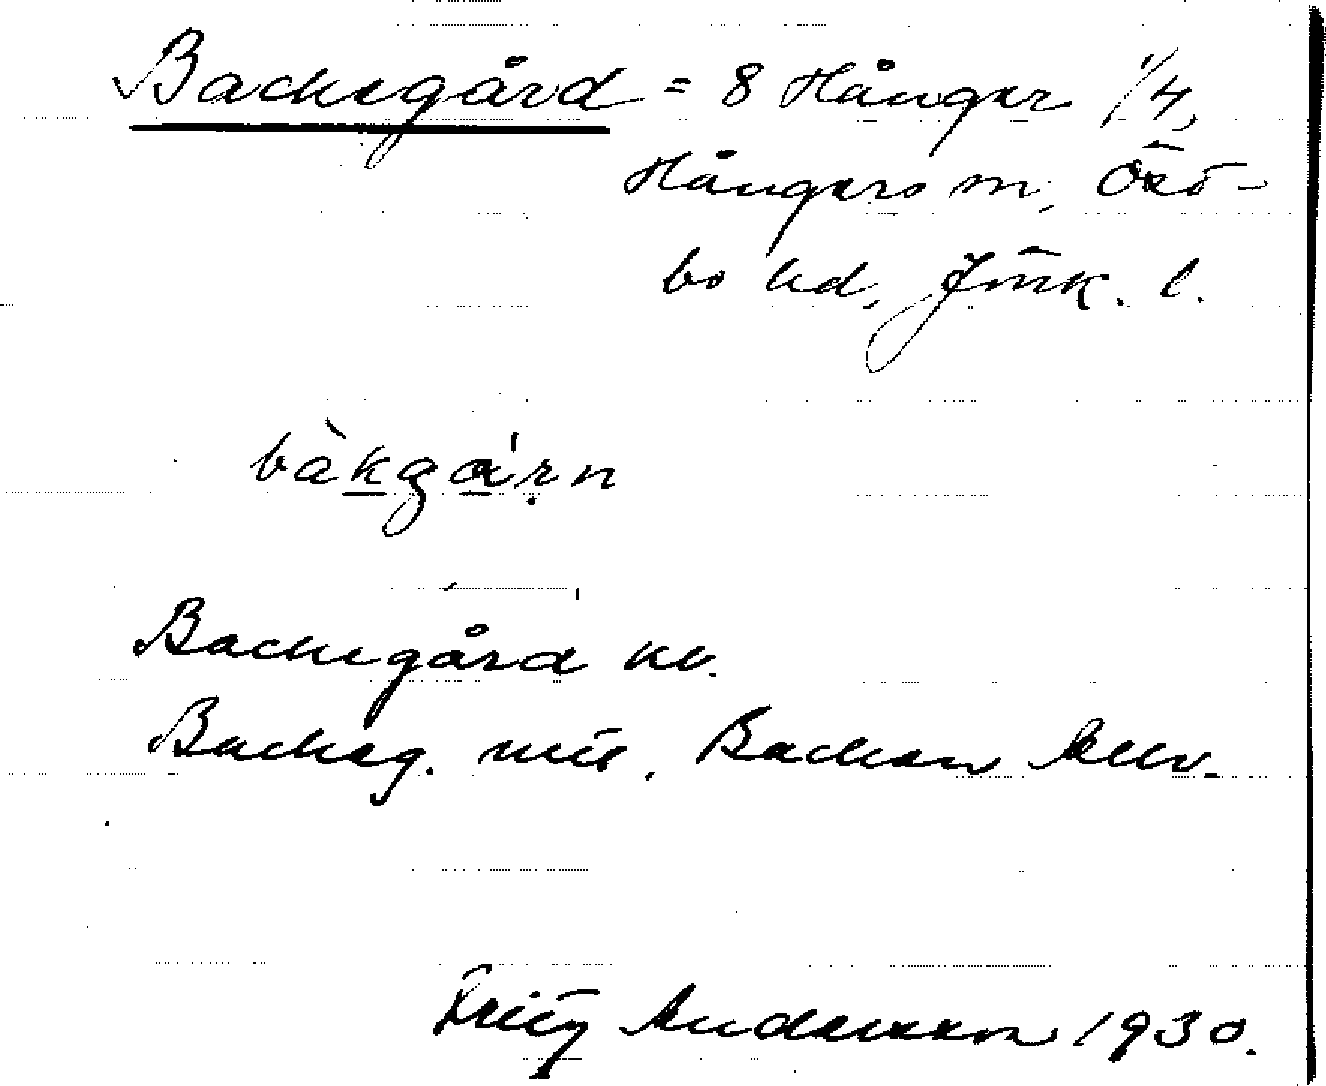 Backegård = 8 Hånger 1/4,
Hångers sn, Östbo
bo hd, Jönk. l.
bàkgá'rn
Backegård kv.
Backeg. mtl. Backen
Fritz Andersson 1930.